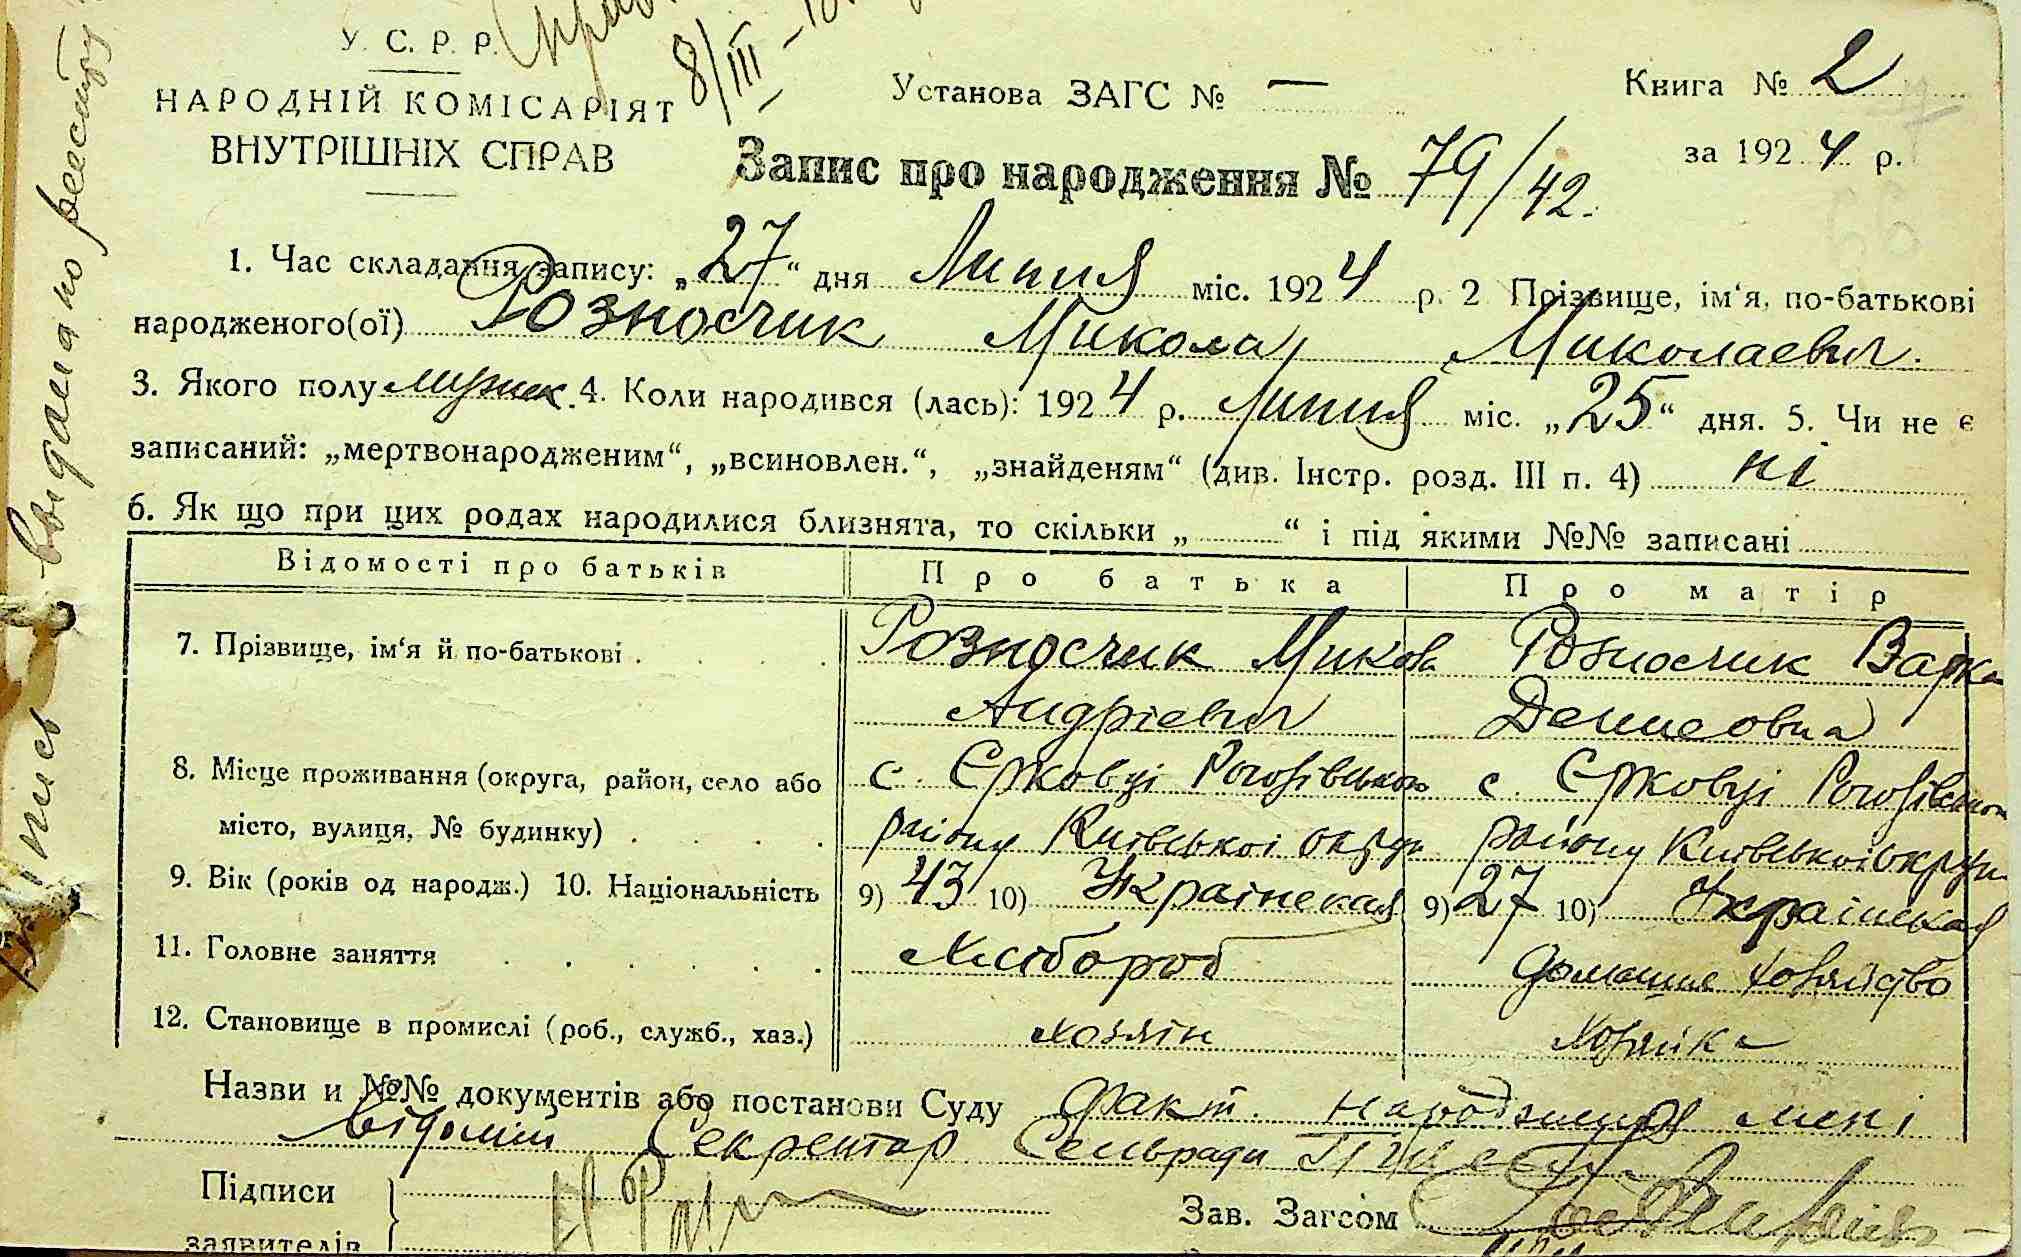 У. С. Р. Р.
НАРОДНІЙ КОМІСАРІЯТ
ВНУТРІШНІХ СПРАВ
8/III
Установа ЗАГС № —
Книга № 2
за 1924 р.
Запис про народження № 79/42.
1. Час складання запису: „27“ дня Липня міс. 1924 р. 2 Прізвище, ім‘я, по-батькові
народженого(ої) Розносчик Микола Миколаевич.
3. Якого полу мужск. 4. Коли народився (лась): 1924 р. Липня міс. „25“ дня. 5. Чи не є
записаний: „мертвонародженим“, „всиновлен.“, „знайденям“ (див. Інстр. розд. III п. 4) ні
6. Як що при цих родах народилися близнята, то скільки „ “ і під якими №№ записані
Відомості про батьків Про батька Про матір
7. Прізвище, ім‘я й по-батькові Розносчик Микола Розносчик Варка
Андріевич Денисовна
8. Місце проживання (округа, район, село або с. Єрковці Рогозівського с. Єрковці Рогозівського
місто, вулиця, № будинку) району Київської округи району Київської округи
9. Вік (років од народж.) 10. Національність 9) 43 10) Українская 9) 27 10) Українская
11. Головне заняття Хлібороб домашне хозяйство
12. Становище в промислі (роб., служб., хаз.) хозяін Хозяйка
Назви и №№ документів або постанови Суду факт народження мені
відомий Секретар Сельради
Підписи
заявителів
Зав. Загсом
видана по реестру